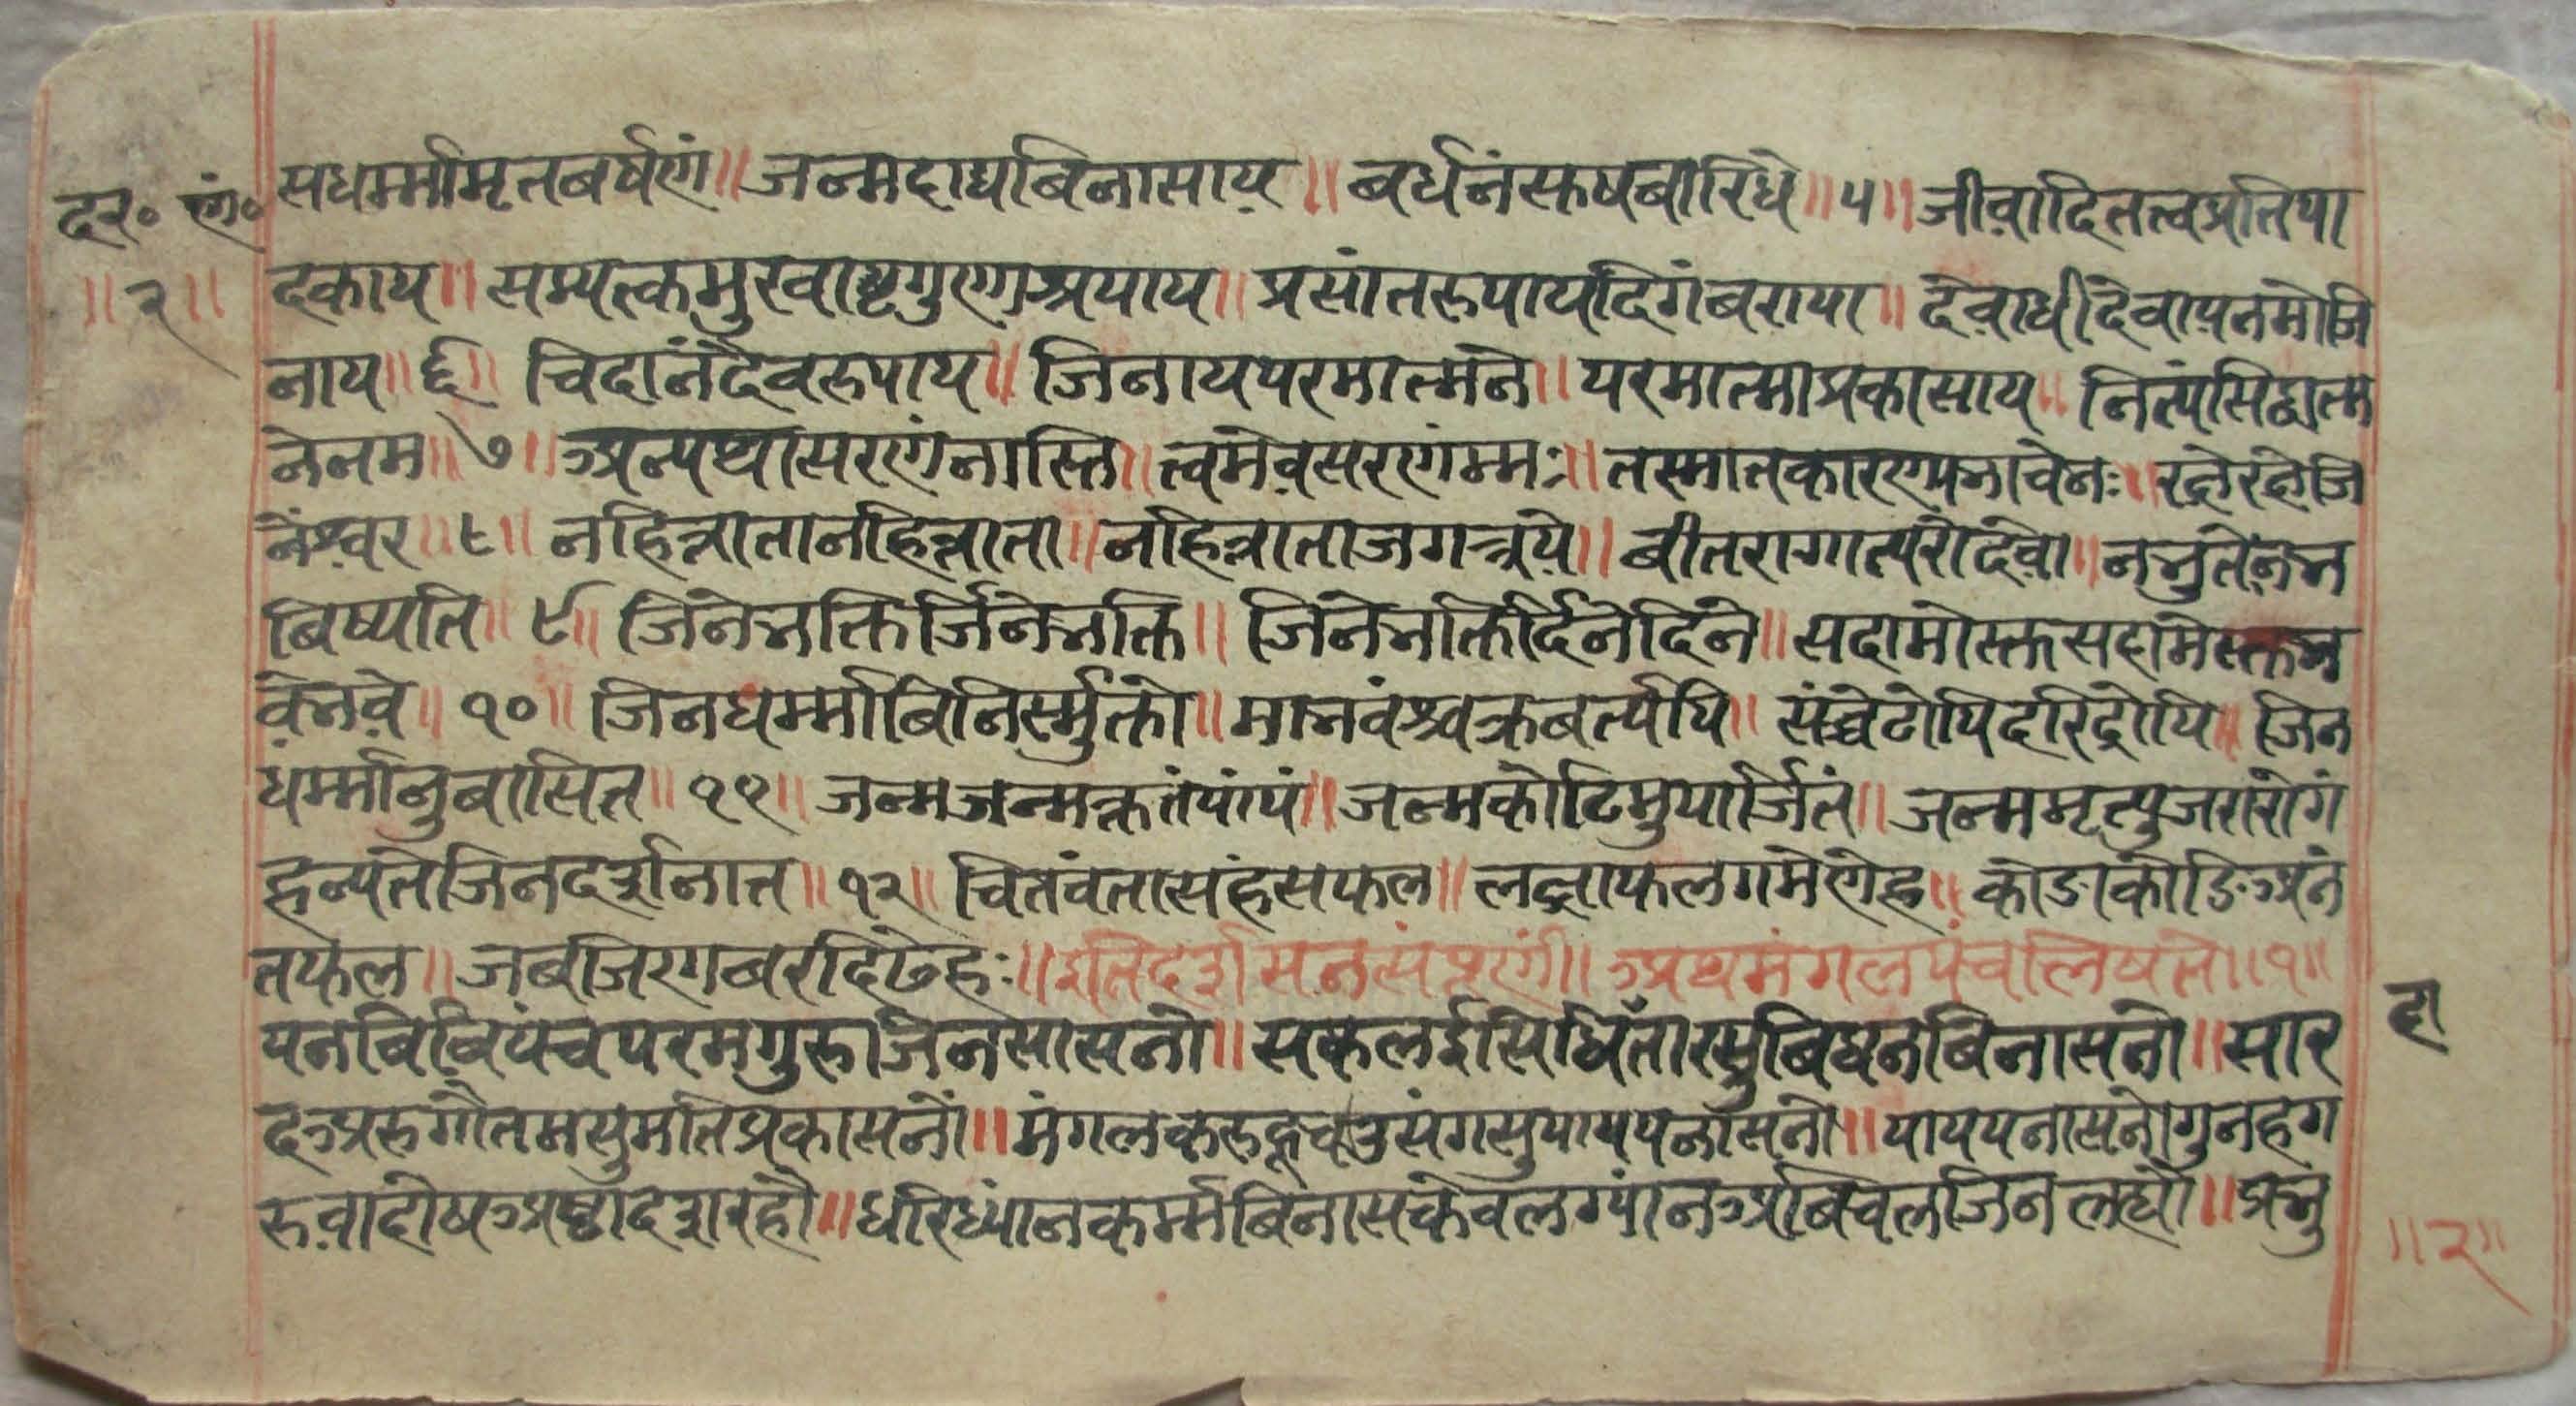 सधर्म्मामृतबर्षणं॥ जन्मदाघबिनासाय॥ बर्धनंसुषबारिधे॥ ५॥ जीवादितत्वप्रतिपा
दर॰ णं॰
॥२॥
दकाय॥ सम्यत्कमुखाष्टगुणाश्रयाय॥ प्रसांतरुपायदिगंबराया॥ देवाधीदेवायनमोजि
नाय॥ ६॥ चिदानंदैवरुपाय॥ जिनायपरमात्मने॥ परमात्माप्रकासाय॥ नित्यंसिद्धात्म
नेनम॥ ७॥ अन्यथासरणंनास्ति॥ त्वमेवसरणंमम॥ तस्मातकारण्यभावेनः॥ रक्षेरक्षेजि
नेश्वर॥ ८॥ नहित्रातानहित्राता॥ नहित्राताजगत्रये॥ बीतरागात्परोदेवो॥ नभुतेनभ
बिष्यति॥ ९॥ जिनेभक्तिर्जिनेभक्ति॥ जिनेभक्तिर्दिनेदिने॥ सदामोस्तुसदामेस्तुभ
वेभवे॥ १०॥ जिनधर्म्माबिनिर्स्मुक्तो॥ माभवंश्चक्रबर्त्यपि॥ संच्चेटोपिदरिद्रोपि॥ जिन
धर्म्मानुबासित॥ ११॥ जन्मजन्मकृतंपांपं॥ जन्मकोटिमुपार्जितं॥ जन्ममृत्युजरारोगं
हन्यतेजिनदर्शनात्त॥ १२॥ चितवंतासंहसफल॥ लक्षाफलगमेणेह॥ कोडाकोडिअनं
तफल॥ जबजिणबरदिठेहः॥ इतिदर्शसनसंपूरणं॥ अथमंगलपंचलिषते॥१॥
पनबिबिपंचपरमगुरुजिनसासनो॥ सकलईसिधिंतारसुबिघनबिनासनो॥ सार
दअरुगौतमसुमतिप्रकासनों॥ मंगलकरुहूचउसंगसुपायपनासनो॥ पायपनासनोगुनहग
रुवादोषअष्टादशरहौ॥ धरिध्यांनकर्म्मबिनासकेवलग्यांनअबिचलजिनलह्यौ॥ प्रभु
॥२॥